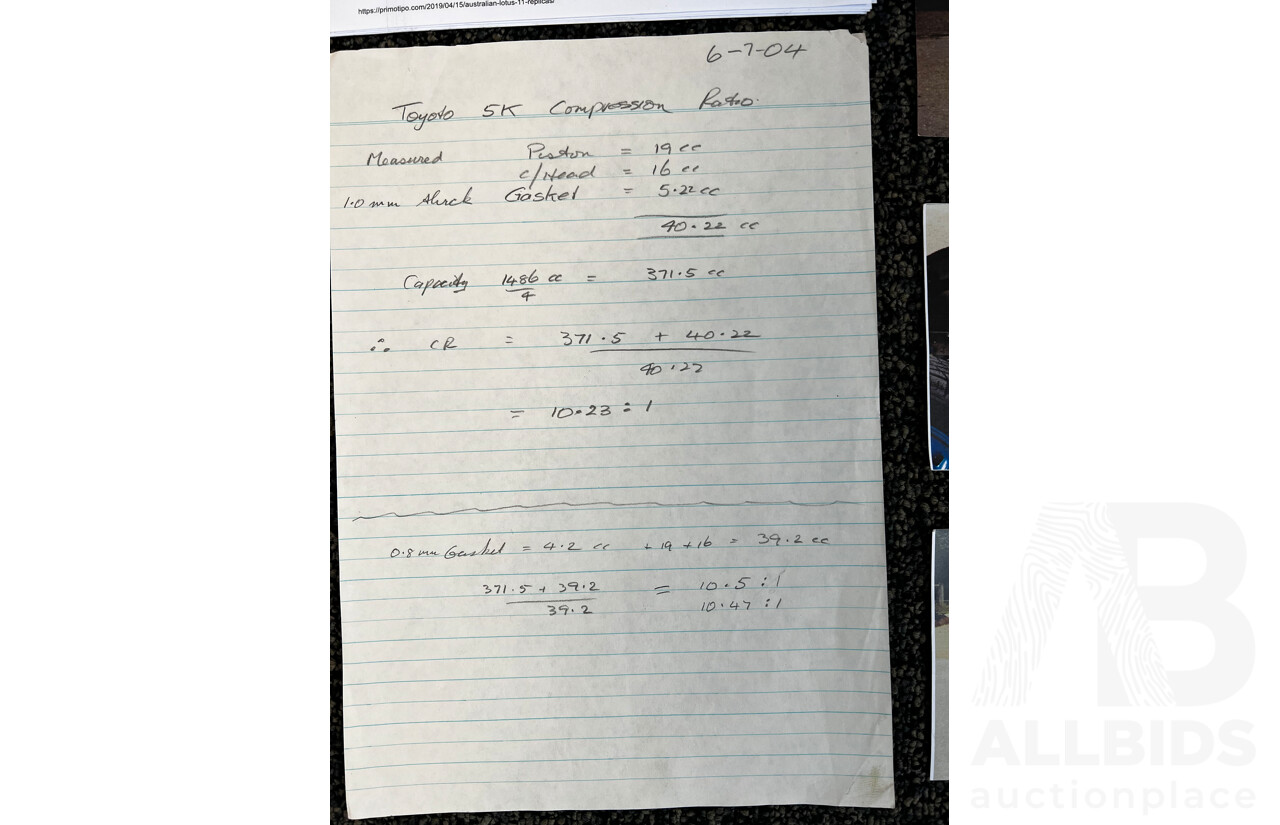 https://primotipo.com/2019/04/15/australian-lotus-11-replicas/
6-7-04
Toyoto 5K Compression Ratio.
Measured Piston = 19 cc
c/Head = 16 cc
1.0 mm thick Gasket = 5.22 cc
40.22 cc
Capacity 1486 cc = 371.5 cc
4
∴ CR = 371.5 + 40.22
40.22
= 10.23 : 1
0.8 mm Gasket = 4.2 cc + 19 + 16 = 39.2 cc
371.5 + 39.2 = 10.5 : 1
39.2 10.47 : 1
AB
ALLBIDS
auctionplace